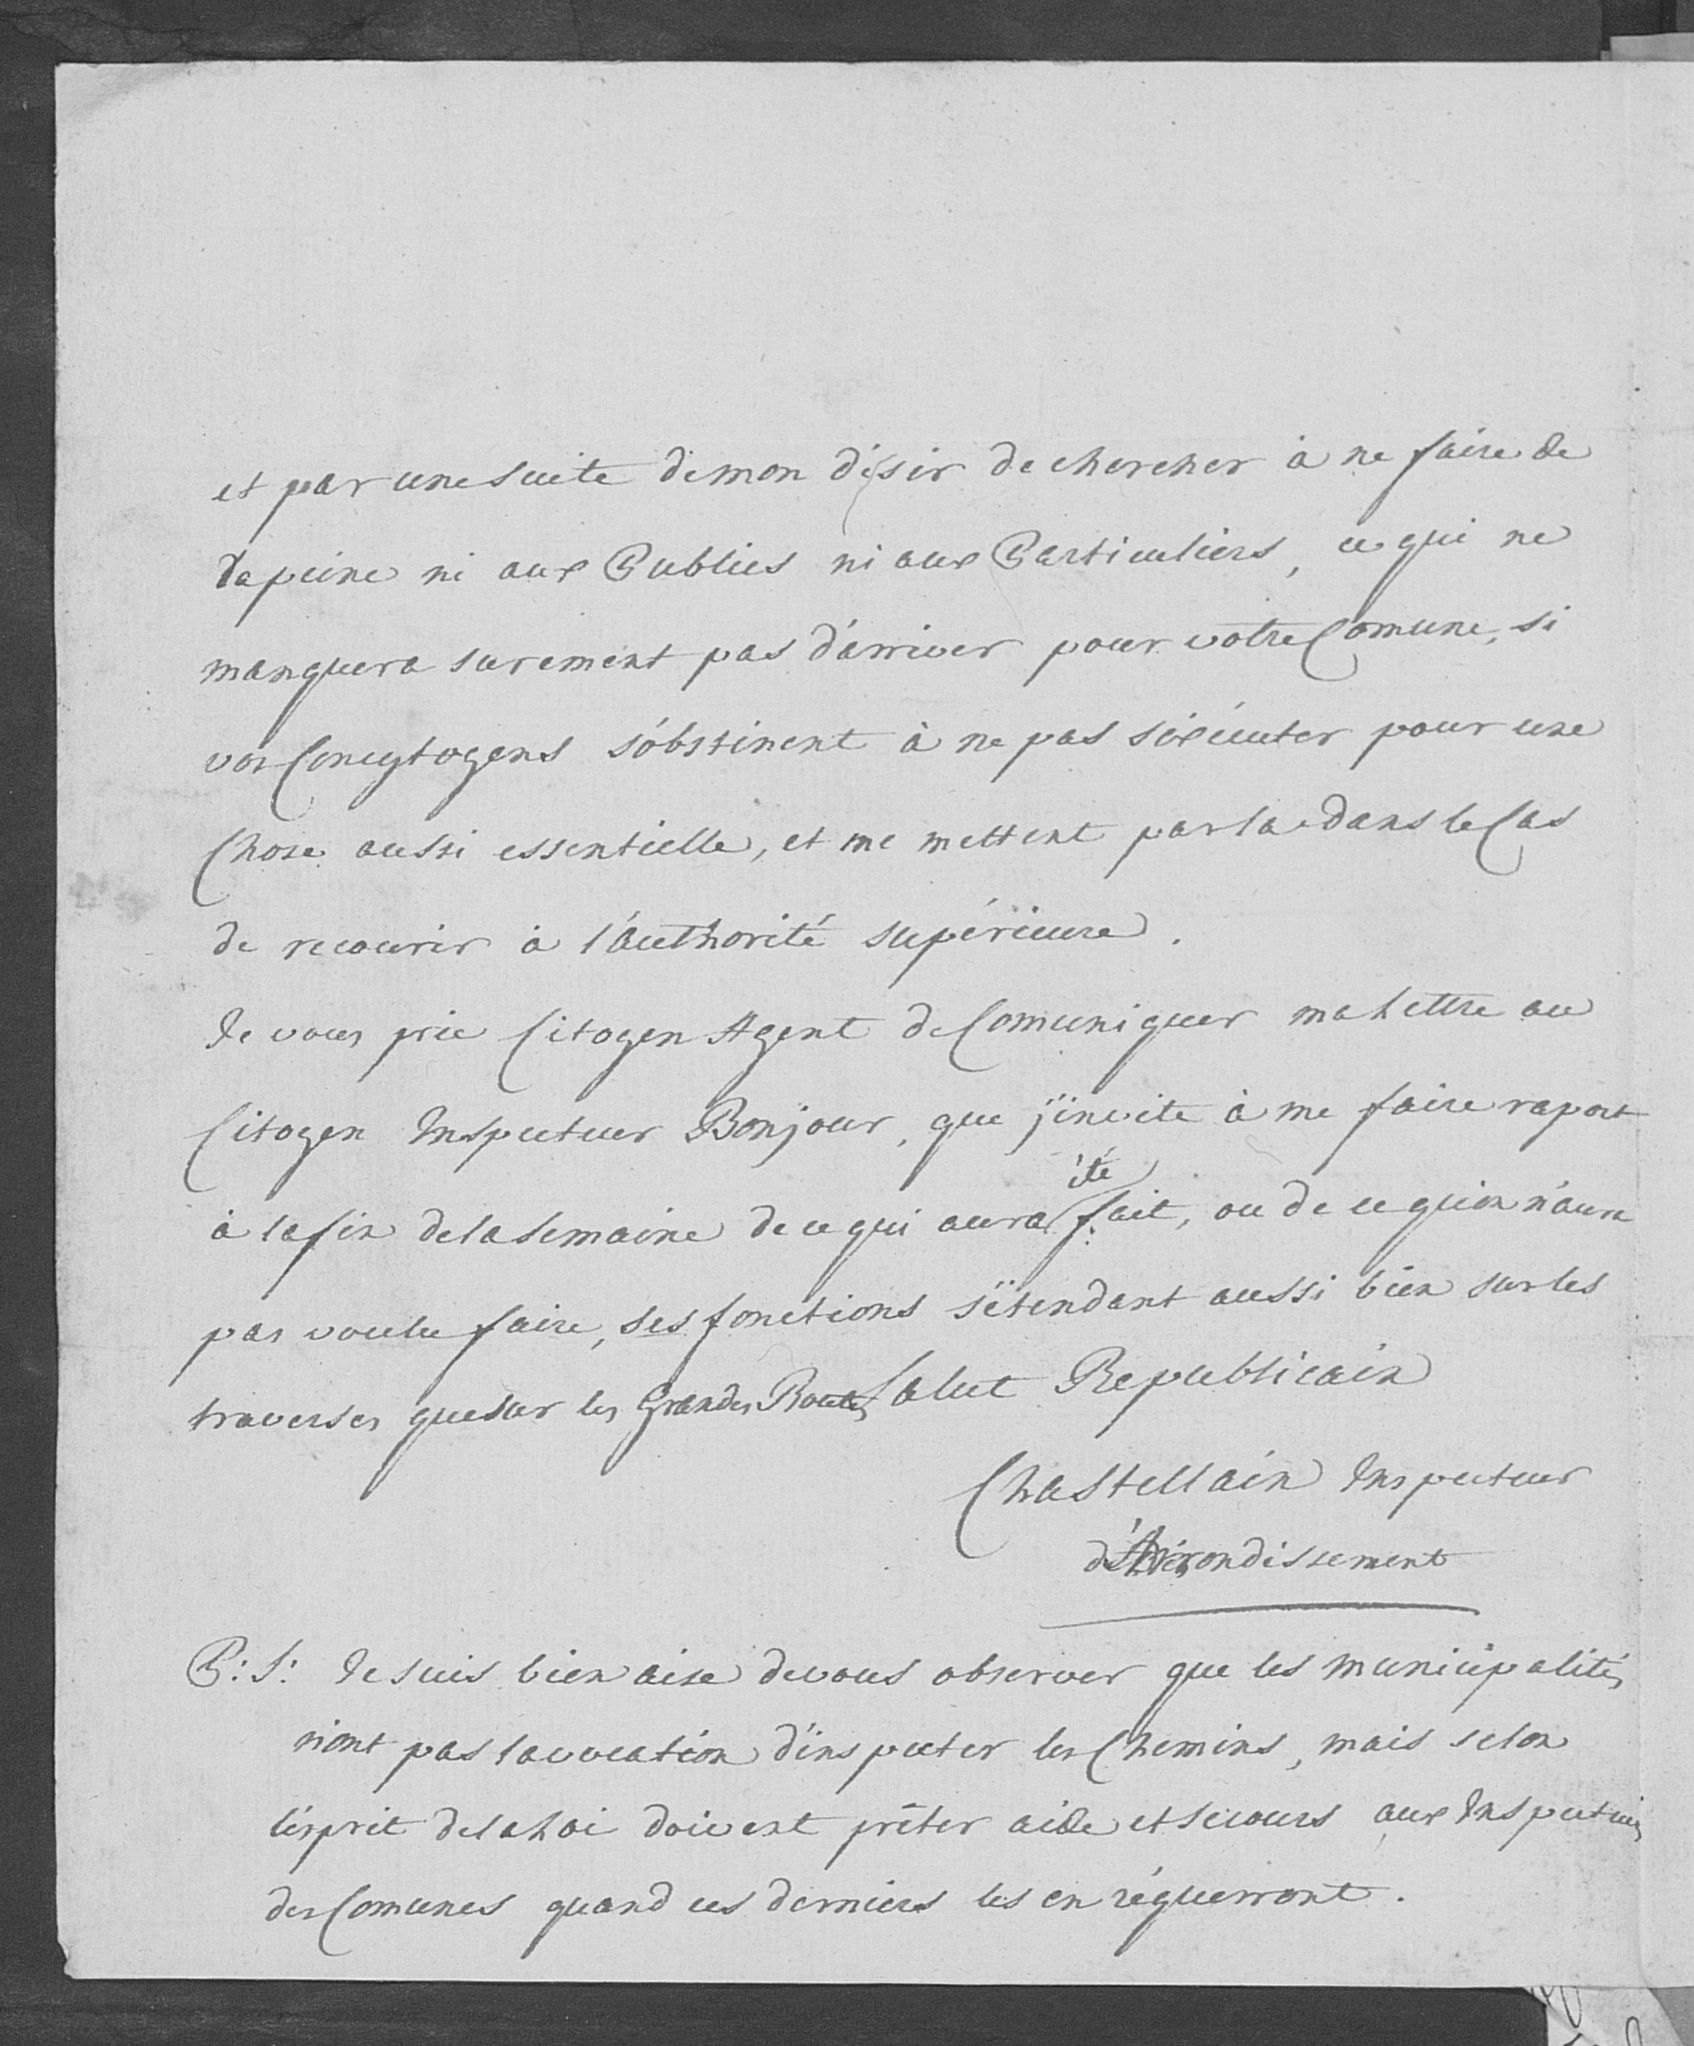 et par une suite de mon désir de chercher à ne faire de
la peine ni aux Publics ni aux Particuliers, ce qui ne
manquera surement pas d'arriver pour votre Comune, si
vos Concytoyens s'obstinent à ne pas s'éxécuter pour une
Chose aussi essentielle, et me mettent par la dans le Cas
de recourir à l'authorité supérieure.
Je vous prie Citoyen Agent de Comuniquer ma Lettre au
Citoyen Inspecteur Bonjour, que j'invite à me faire raport
à la fin de la Semaine de ce qui aura été fait, ou de ce qu'on n'aura
pas voulu faire, ses fonctions s'étendant aussi bien sur les
traverses que sur les Grandes Routes Salut Republicain
Chastellain Inspecteur
d'Arrondissement
P: S: Je suis bien aise de vous observer que les Municipalités
n'ont pas la vocation d'inspecter les Chemins, mais selon
l'esprit de la Loi doivent prêter aide et secours aux Inspecteurs
des Comunes quand ces derniers les en réquerront.